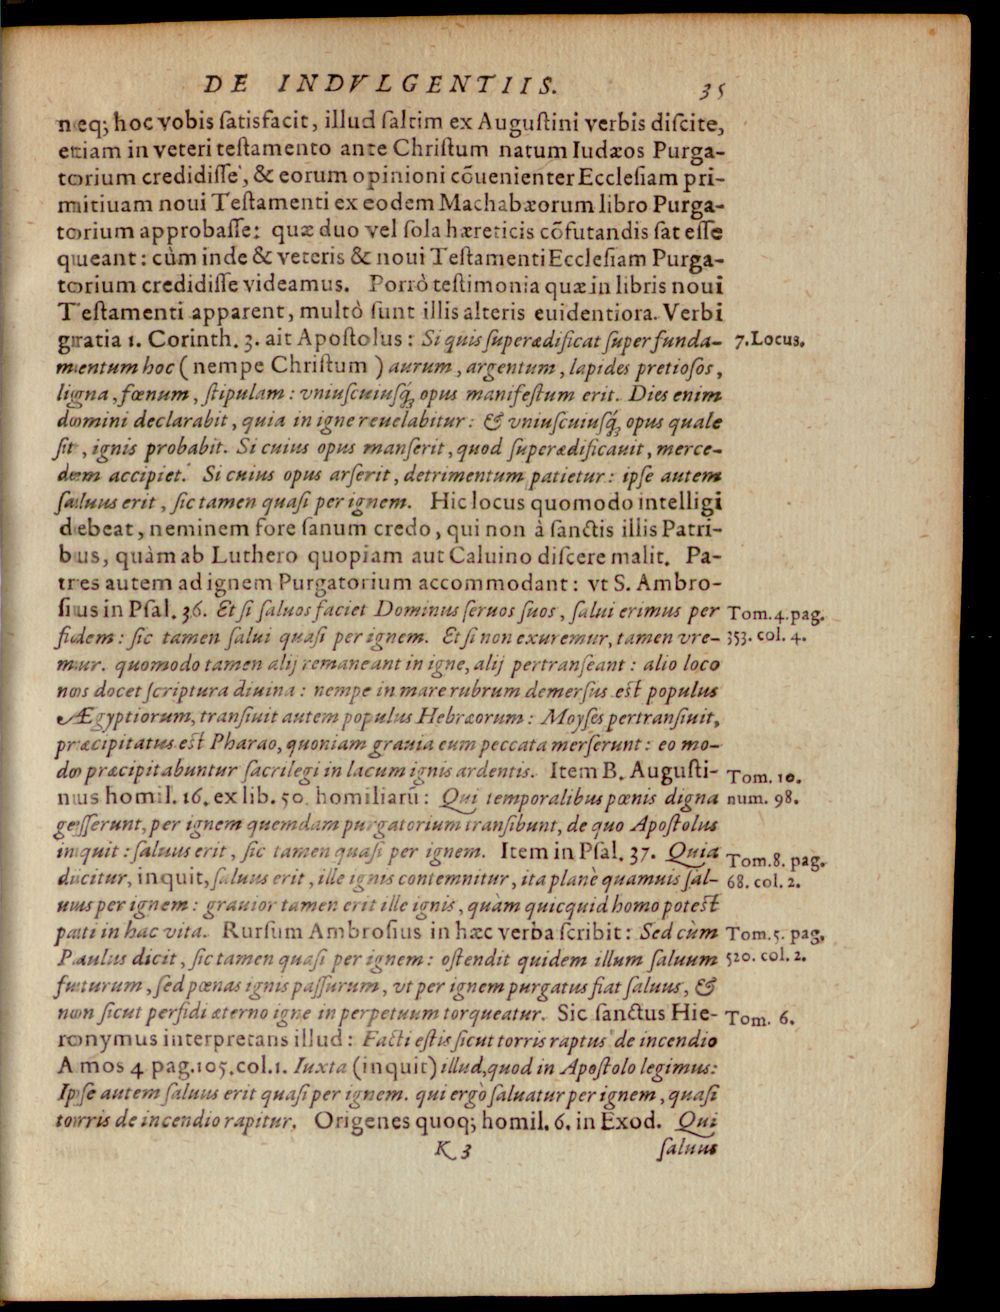 DE INDVLGENTIIS. 35
neq; hoc vobis ſatisfacit, illud ſaltim ex Auguſtini verbis diſcite,
etiam in veteri teſtamento ante Chriſtum natum Iudæos Purga-
torium credidiſſe, & eorum opinioni cõuenienter Eccleſiam pri-
mitiuam noui Teſtamenti ex eodem Machabæorum libro Purga-
torium approbaſſe: quæ duo vel ſola hæreticis cõfutandis ſat eſſe
queant: cùm inde & veteris & noui Teſtamenti Eccleſiam Purga-
torium credidiſſe videamus. Porrò teſtimonia quæ in libris noui
Teſtamenti apparent, multò ſunt illis alteris euidentiora. Verbi
gratia 1. Corinth. 3. ait Apoſtolus: Si quis ſuperædificat ſuper funda-
7. Locus.
mentum hoc (nempe Chriſtum) aurum, argentum, lapides pretioſos,
ligna, fœnum, ſtipulam: vniuſcuiuſq́; opus manifeſtum erit. Dies enim
domini declarabit, quia in igne reuelabitur: & vniuſcuiuſq́; opus quale
ſit, ignis probabit. Si cuius opus manſerit, quod ſuperædificauit, merce-
dem accipiet. Si cuius opus arſerit, detrimentum patietur: ipſe autem
ſaluus erit, ſic tamen quaſi per ignem. Hic locus quomodo intelligi
debeat, neminem fore ſanum credo, qui non à ſanctis illis Patri-
bus, quàm ab Luthero quopiam aut Caluino diſcere malit. Pa-
tres autem ad ignem Purgatorium accommodant: vt S. Ambro-
ſius in Pſal. 36. Et ſi ſaluos faciet Dominus ſeruos ſuos, ſalui erimus per
Tom. 4. pag.
fidem: ſic tamen ſalui quaſi per ignem. Et ſi non exuremur, tamen vre-
353. col. 4.
mur. quomodo tamen alij remaneant in igne, alij pertranſeant: alio loco
nos docet ſcriptura diuina: nempe in mare rubrum demerſus est populus
Ægyptiorum, tranſiuit autem populus Hebræorum: Moyſes pertranſiuit,
præcipitatus est Pharao, quoniam grauia eum peccata merſerunt: eo mo-
do præcipitabuntur ſacrilegi in lacum ignis ardentis. Item B. Auguſti-
Tom. 10.
nus homil. 16. ex lib. 50. homiliarũ: Qui temporalibus pœnis digna
num. 98.
geſſerunt, per ignem quemdam purgatorium tranſibunt, de quo Apoſtolus
inquit: ſaluus erit, ſic tamen quaſi per ignem. Item in Pſal. 37. Quia
Tom. 8. pag.
dicitur, inquit, ſaluus erit, ille ignis contemnitur, ita planè quamuis ſal-
68. col. 2.
uus per ignem: grauior tamen erit ille ignis, quàm quicquid homo potest
pati in hac vita. Rurſum Ambroſius in hæc verba ſcribit: Sed cùm
Tom. 5. pag.
Paulus dicit, ſic tamen quaſi per ignem: oſtendit quidem illum ſaluum
520. col. 2.
futurum, ſed pœnas ignis paſſurum, vt per ignem purgatus fiat ſaluus, &
non ſicut perfidi æterno igne in perpetuum torqueatur. Sic ſanctus Hie-
Tom. 6.
ronymus interpretans illud: Facti eſtis ſicut torris raptus de incendio
Amos 4 pag. 105. col. 1. Iuxta (inquit) illud, quod in Apoſtolo legimus:
Ipſe autem ſaluus erit quaſi per ignem. qui ergò ſaluatur per ignem, quaſi
torris de incendio rapitur. Origenes quoq; homil. 6. in Exod. Qui
K 3 ſaluus